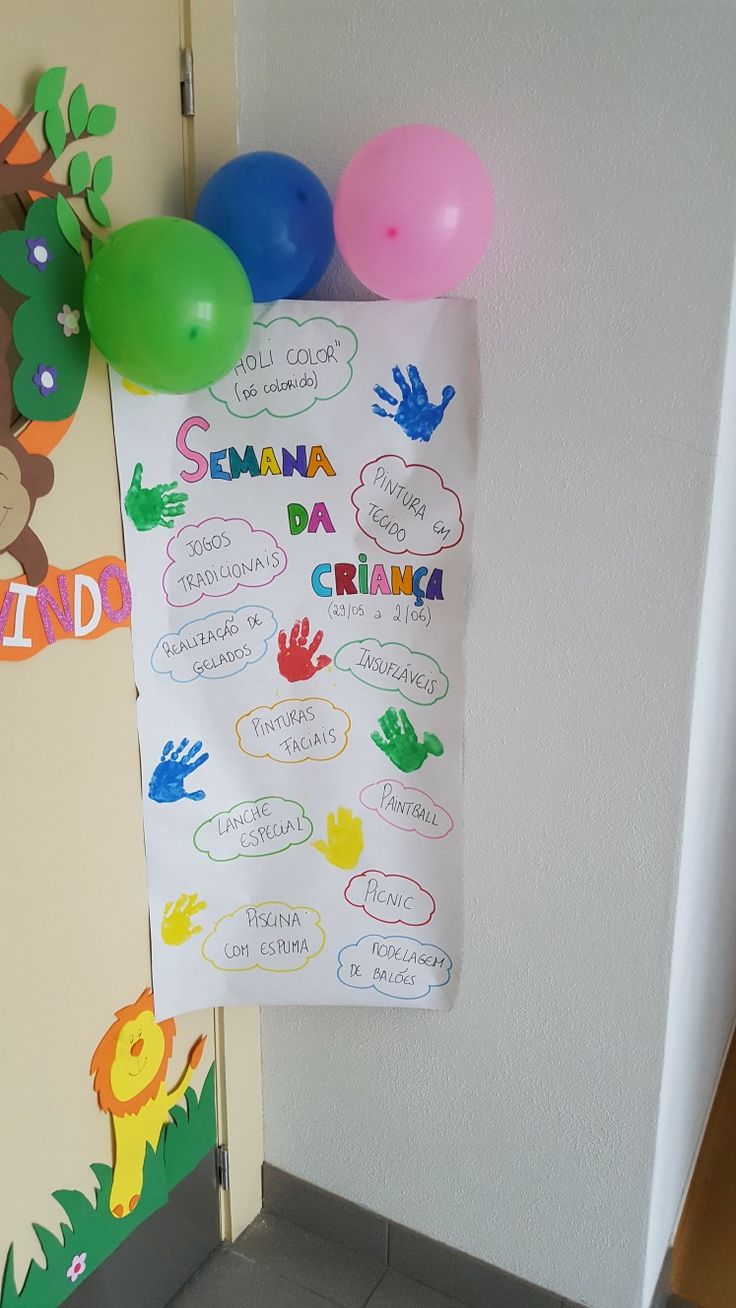 HOLI COLOR"
(pó colorido)
SEMANA
DA
CRIANÇA
(29/05 a 2/06)
PINTURA EM
TECIDO
JOGOS
TRADICIONAIS
REALIZAÇÃO DE
GELADOS
INSUFLÁVEIS
PINTURAS
FACIAIS
PAINTBALL
LANCHE
ESPECIAL
PICNIC
PISCINA
COM ESPUMA
MODELAGEM
DE BALÕES
INDO